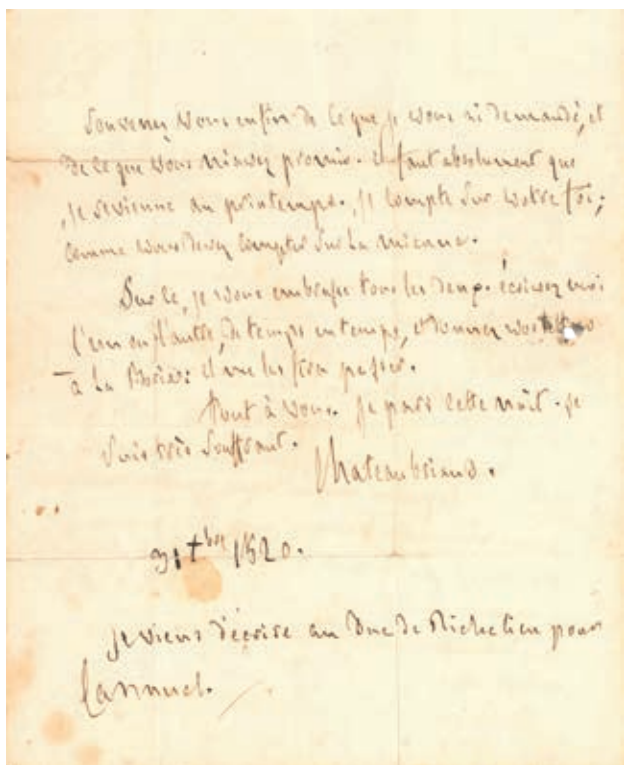 Souvenez vous enfin de ce que je vous ai demandé, et
de ce que vous m'avez promis. il faut absolument que
je revienne au printemps. je compte sur votre foi;
comme vous devez compter sur la mienne.
Sur ce, je vous embrasse tous les deux. écrivez moi
l'un ou l'autre, de temps en temps, et donnez vos
à la il me les fera passer.
Tout à vous. je pars cette nuit. je
suis très souffrant.
Chateaubriand.
31 Xbre 1820.
je viens d'écrire au Duc de Richelieu pour